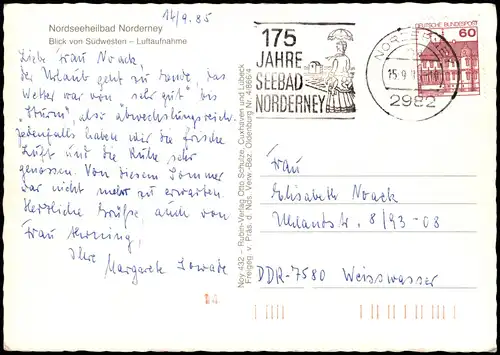 14/9.85
Nordseeheilbad Norderney
Blick von Südwesten – Luftaufnahme
Liebe Frau Noack,
der Urlaub geht zu Ende, das
Wetter war von "sehr gut" bis
"Sturm", also abwechslungsreich.
Jedenfalls haben wir die frische
Luft und die Ruhe sehr
genossen. Von diesem Sommer
war nicht mehr zu erwarten.
Herzliche Grüße, auch von
Frau
Ihre
Margarete
Noy 432 – Rubin-Verlag Otto Schulze, Cuxhaven und Lübeck
Freigeg. v. Präs. d. Nds. Verw.-Bez. Oldenburg Nr.
175
JAHRE
SEEBAD
NORDERNEY
NORDERNEY
15.9.
2982
DEUTSCHE BUNDESPOST
60
Frau
Elisabeth Noack
Uhlandstr. 8/93-08
DDR-7580 Weisswasser